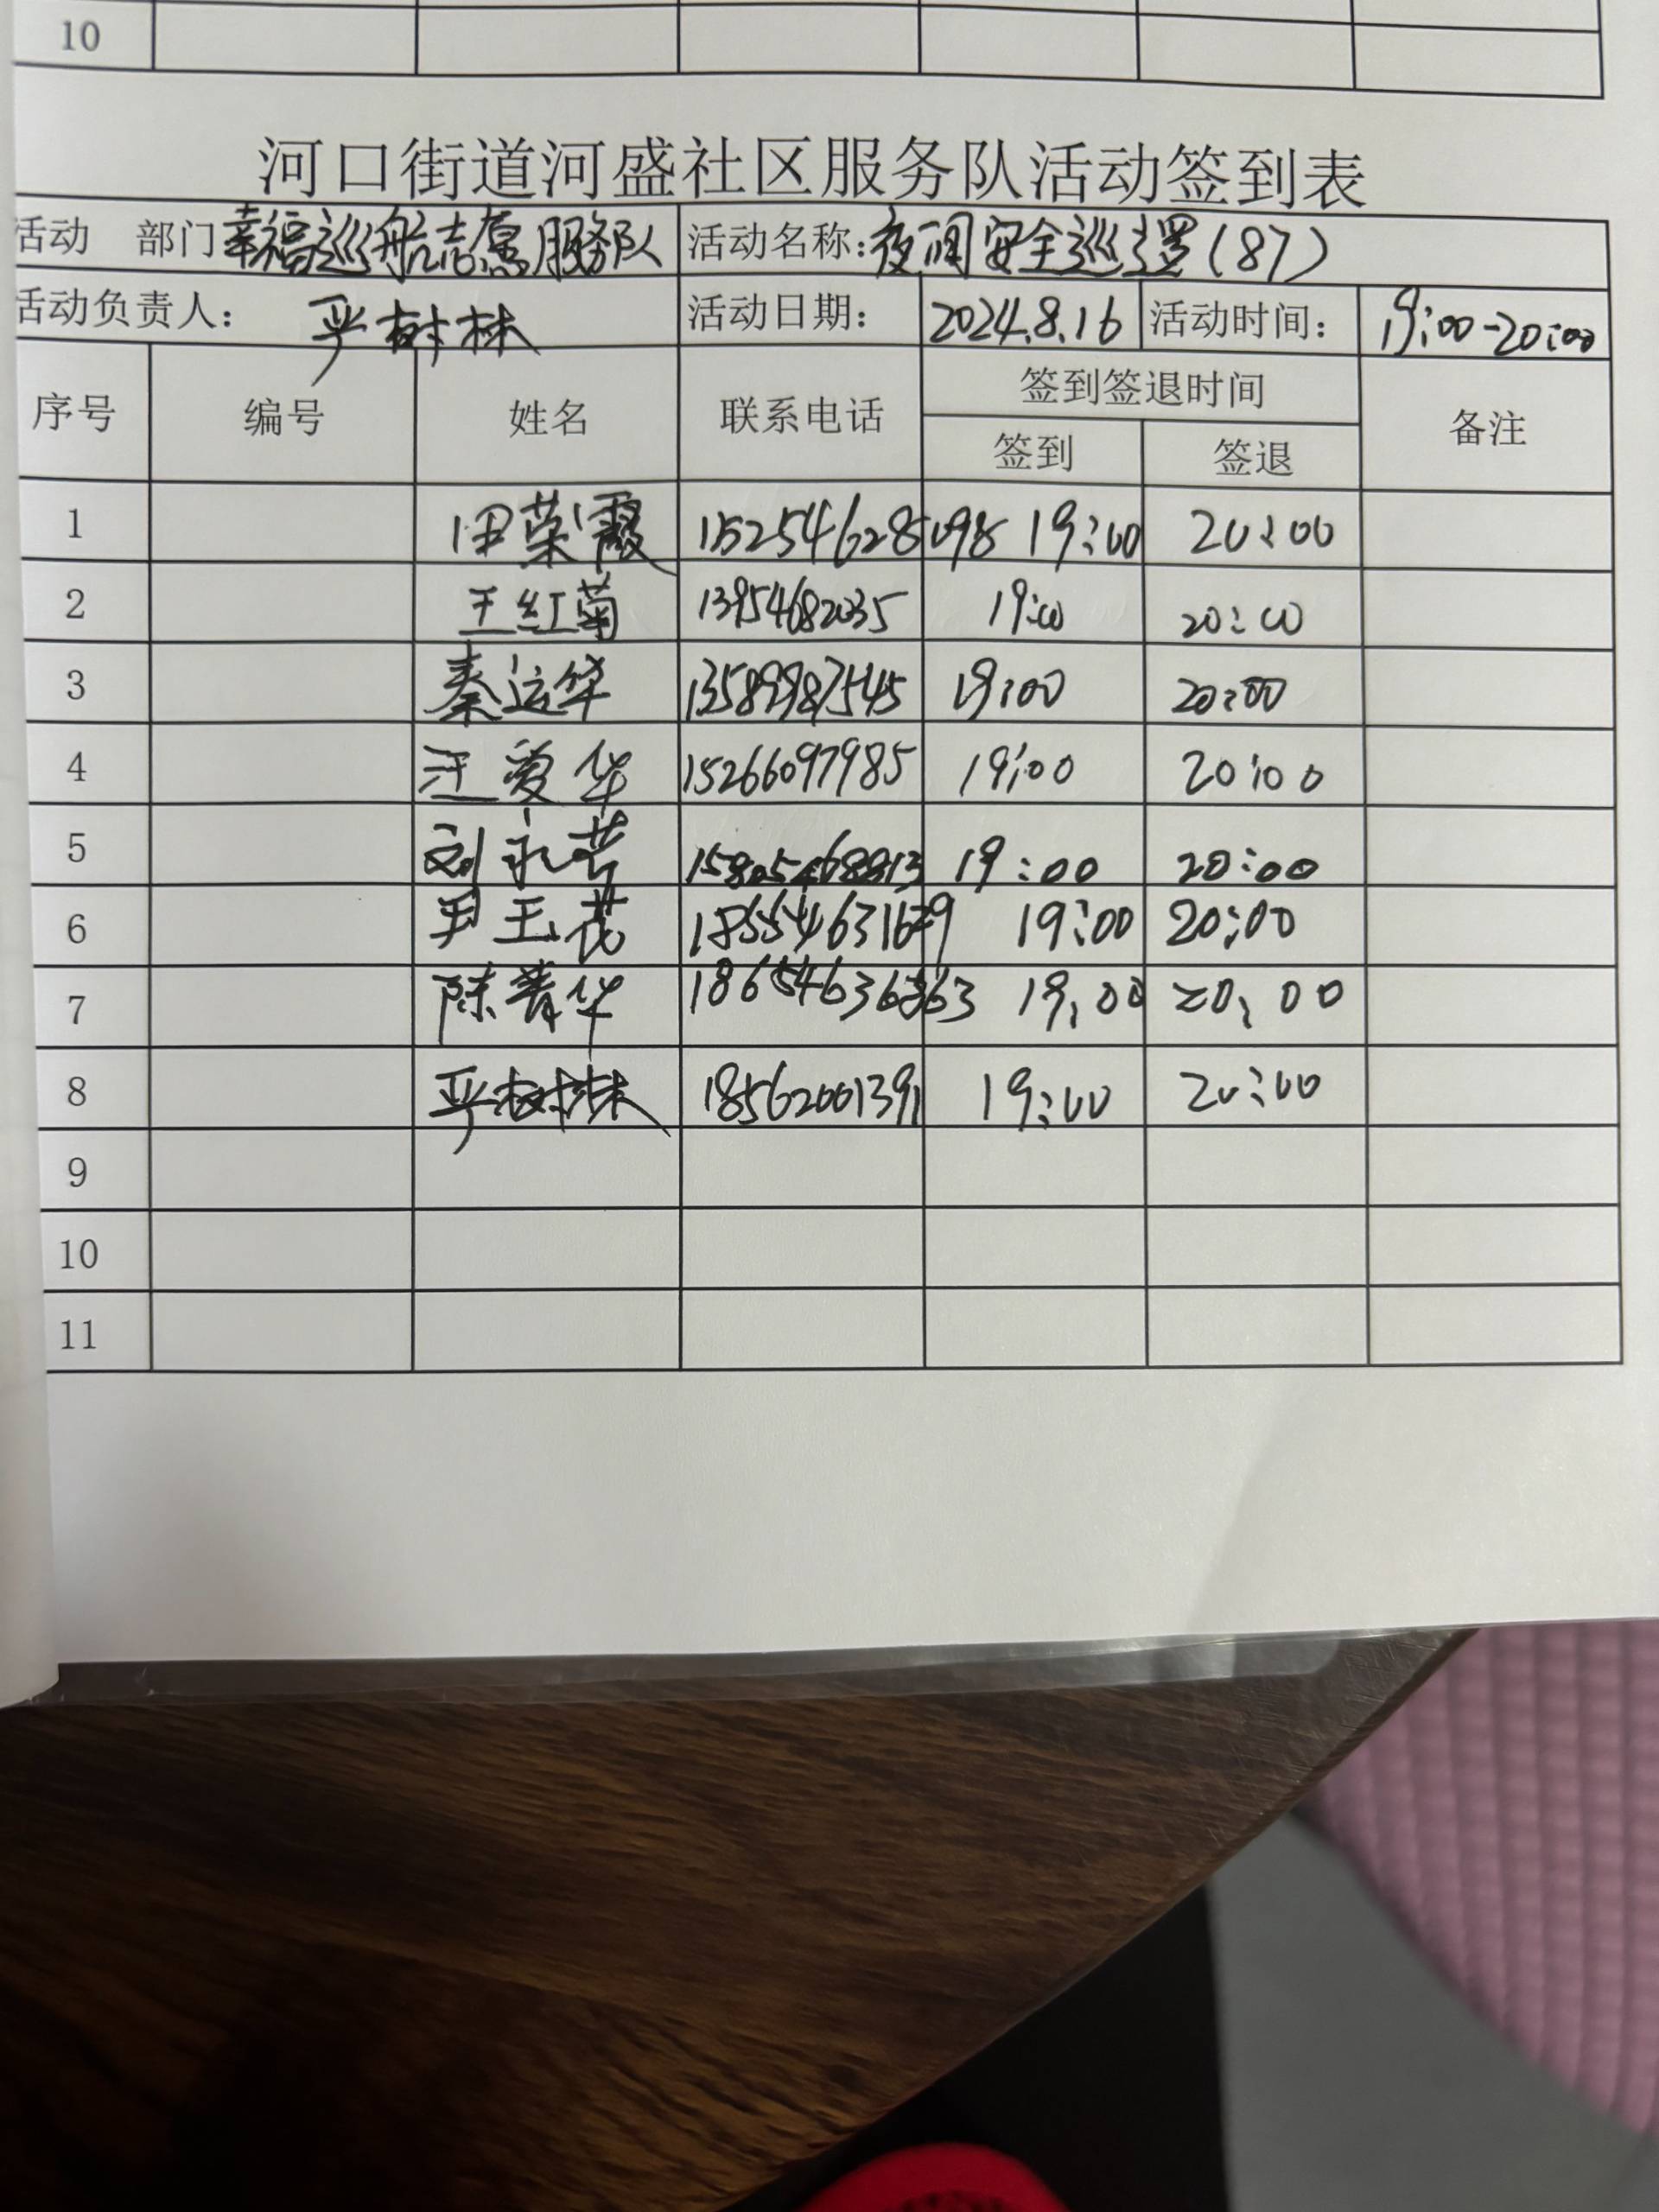 10
河口街道河盛社区服务队活动签到表
活动 部门 幸福巡航志愿服务队 活动名称：夜间安全巡逻（87）
活动负责人： 严树林 活动日期： 2024.8.16 活动时间： 19:00-20:00
序号 编号 姓名 联系电话 签到签退时间 备注
签到 签退
1 田荣霞 19:00 20:00
2 王红菊 13954682035 19:00 20:00
3 秦运华 13589987545 19:00 20:00
4 汪爱华 15266097985 19:00 20:00
5 刘永芳 19:00 20:00
6 尹玉花 19:00 20:00
7 陈菁华 19:00 20:00
8 严树林 18562001391 19:00 20:00
9
10
11